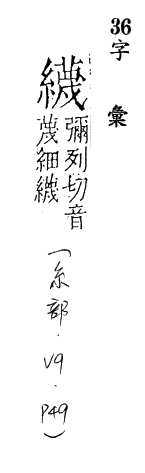 36字彙
纀彌列切音
蔑細纀
(糸部．V9．P49)